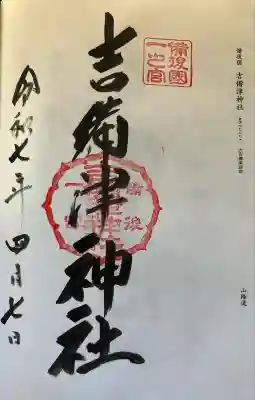 備後國 吉備津神社
山陽道
備後國
一之宮
吉備津神社
令和七年 四月七日